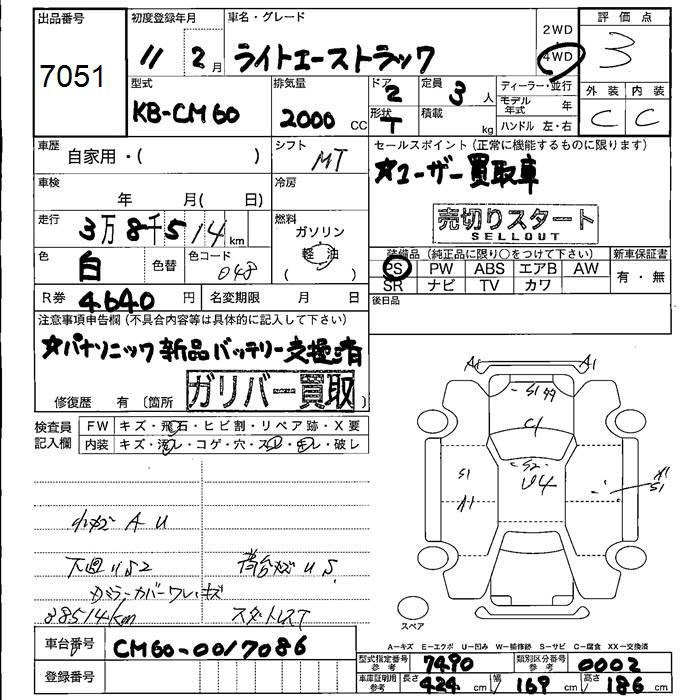 出品番号 初度登録年月 車名・グレード 2WD 評価点
7051 11 2月 ライトエーストラック 4WD 3
型式 排気量 ドア 定員 ディーラー・並行 外装 内装
KB-CM60 2000 CC 2 3人 モデル年式 年 C C
形状 T 積載 kg ハンドル 左・右
車歴 自家用・( ) シフト MT セールスポイント(正常に機能するものに限ります)
☆ユーザー買取車
車検 年 月( 日) 冷房
売切りスタート
SELLOUT
走行 3万8千514km 燃料 ガソリン 軽油 ( )
装備品(純正品に限り○をつけて下さい) 新車保証書
色 白 色替 色コード 048 PS PW ABS エアB AW 有・無
SR ナビ TV カワ
R券 4640円 名変期限 月 日 後日品
注意事項申告欄(不具合内容等は具体的に記入して下さい)
☆パナソニック新品バッテリー交換済
修復歴 有〔箇所 ガリバー買取 〕
検査員記入欄 FW キズ・飛石・ヒビ割・リペア跡・X要
内装 キズ・汚レ・コゲ・穴・スレ・キレ・破レ
A1 A1
S1
C1
S2
U4
S1
A1
X1
S1
A U
下廻りS2 荷台 U S
ミラーカバーワレ・キズ
38514Km スタットレスT
スペア
A=キズ E=エクボ U=凹み W=補修跡 S=サビ C=腐食 XX=交換済
車台番号 CM60-0017086
型式指定番号 参考 7490 類別区分番号 参考 0002
登録番号 車庫証明用 参考 長さ 424 cm 幅 169 cm 高さ 186 cm